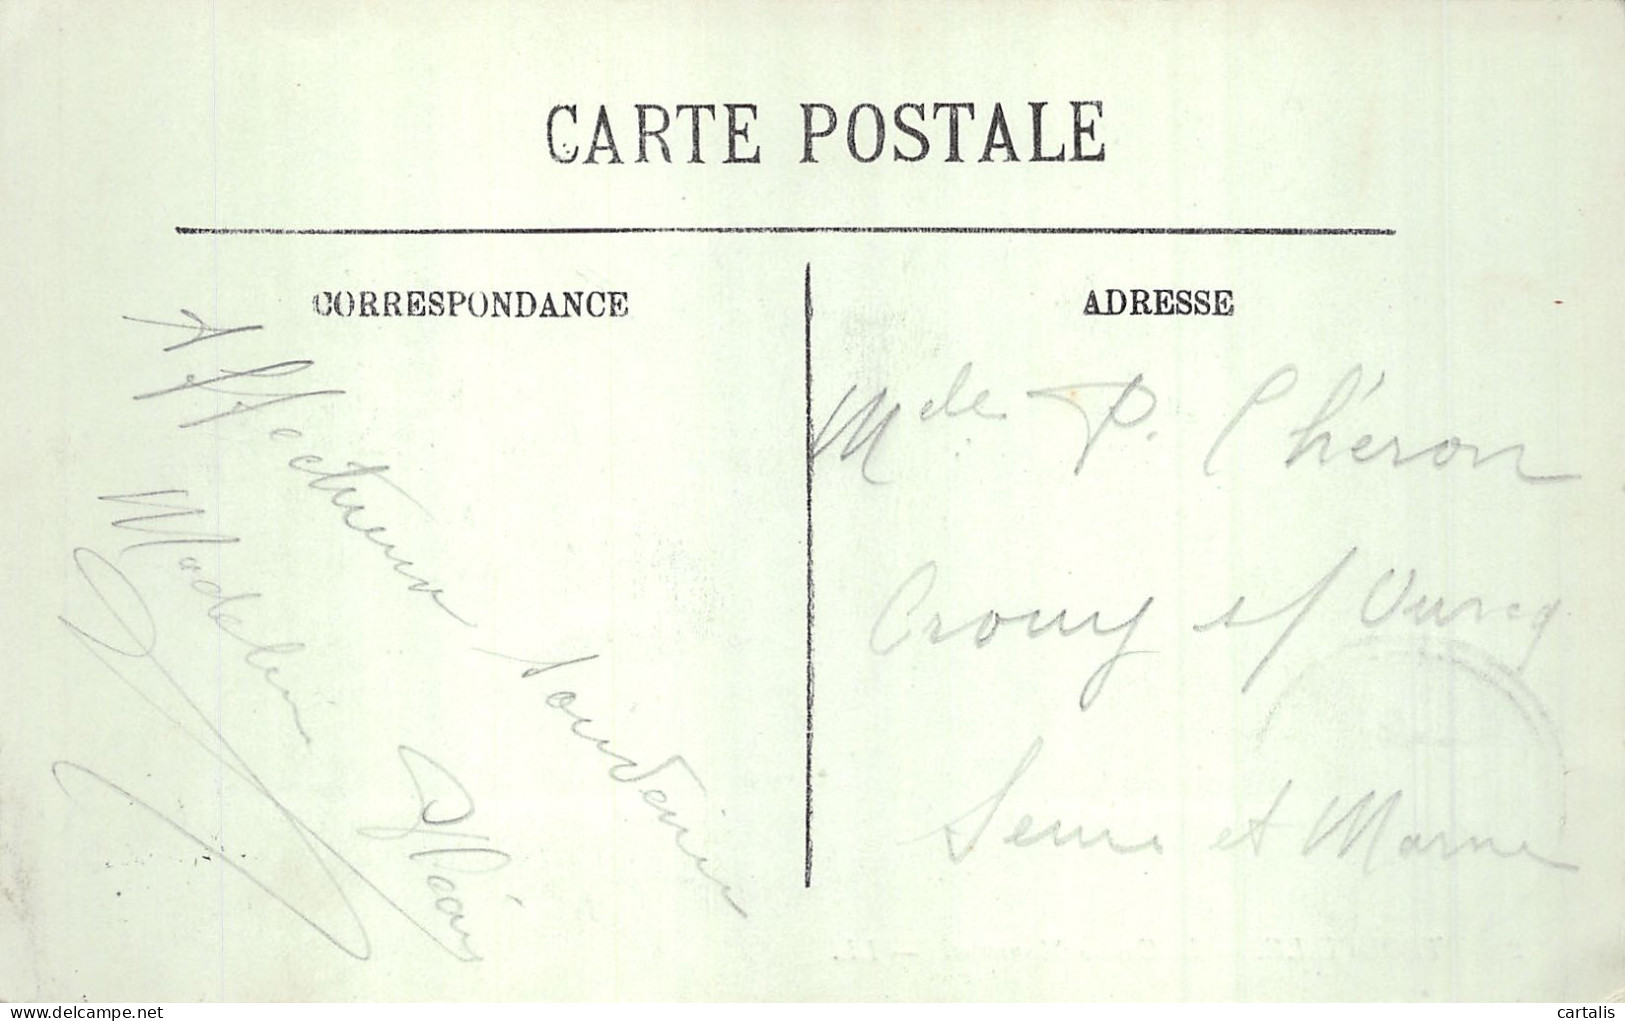 CARTE POSTALE
CORRESPONDANCE
Affectueux souvenir
Madeleine
ADRESSE
Mde P. Chéron
Crouy s/ Ourcq
Seine et Marne
delcampe.net
cartalis